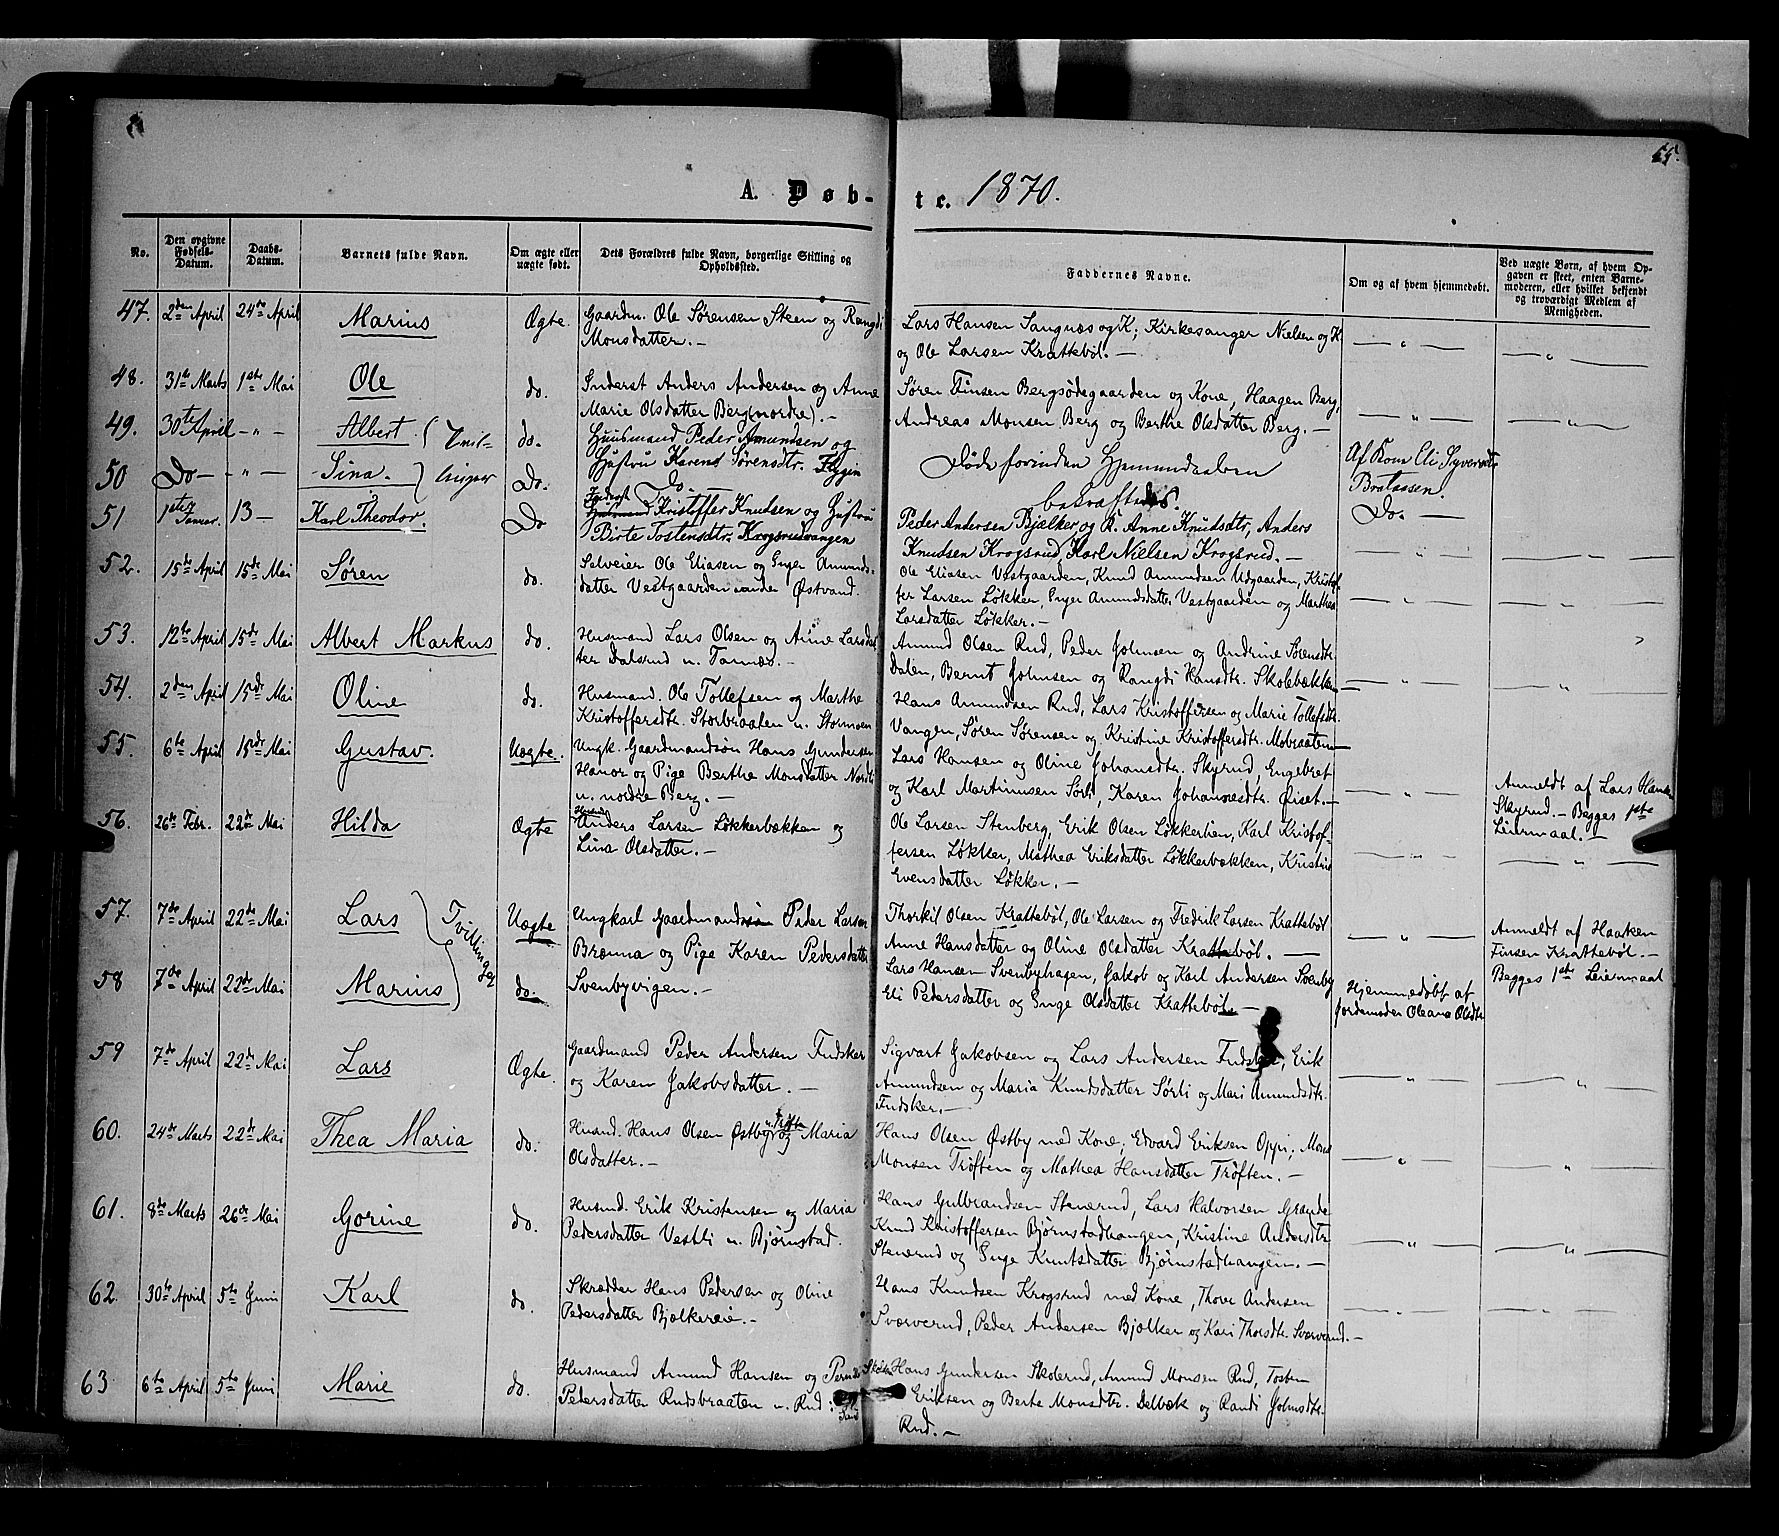 65.
A. Døb-
te. 1870.
No.
Den opgivne Fødsels-Datum.
Daabs-Datum.
Barnets fulde Navn.
Om ægte eller uægte født.
Dets Forældres fulde Navn, borgerlige Stilling og Opholdssted.
Faddernes Navne.
Om og af hvem hjemmedøbt.
Ved uægte Børn, af hvem Opgaven er skeet, enten Barnemoderen, eller hvilket bekjendt og troværdigt Medlem af Menigheden.
47. 2den April 24de April Marius Ægte. Gaardm. Ole Sørensen Steen og Rangdi
Monsdatter.-
Lars Hansen Sangnæs og K; Kirkesanger Nielsen og K
og Ole Larsen Krattebøl.-
48. 31te Marts 1ste Mai Ole do. Inderst Anders Andersen og Anne
Marie Olsdatter Berg (nordre).-
Søren Finsen Bergsødegaarden og Kone, Haagen Berg,
Andreas Monsen Berg og Berthe Olsdatter Berg.-
49. 30te April - " - Albert do. Huusmand Peder Amundsen og
50 Do - - " - Sina. Do. Hustru Karen Sørensdtr.
Do
Døde forinden Hjemmedaaben
bekræftedes.
Af Kone Eli Syversdtr
Brataasen.
51 1ste Januar. 13 - Karl Theodor. Do Inderst Kristoffer Knudsen og Hustru
Birte Tostensdtr. Krogsrudvangen
Peder Andersen Bjælker og K. Anne Knudsdtr, Anders
Knudsen Krogsrud, Karl Nielsen Krogsrud.-
Do. -
52. 15de April 15de Mai Søren do. Selveier Ole Eliasen og Inger Amunds-
datter Vestgaarden nordre Østvand.
Ole Eliasen Vestgaarden, Knud Amundsen Udgaarden, Kristof-
fer Larsen Løkker, Inger Amundsdatter Vestgaarden og Marthea
Larsdatter Løkker.-
53. 12te April 15de Mai Albert Markus do. Husmand Lars Olsen og Anne Larsdat-
ter Dalsrud u. Tannæs.-
Amund Olsen Rud, Peder Johnsen og Andrine Sørensdtr.
Dalen, Bernt Johnsen og Rangdi Hansdtr. Skolebækken
54. 2den April 15de Mai Oline do. Husmand. Ole Tollefsen og Marthe
Kristoffersdtr. Storbraaten u. Stormoen
Hans Amundsen Rud, Lars Kristoffersen og Marie Tollefsdtr.
Vangen, Søren Sørensen og Kristine Kristoffersdtr. Mobraaten
55. 6te April 15de Mai Gustav. Uægte. Ungk. Gaardmandsøn Hans Gundersen
Hanor og Pige Berthe Monsdatter Nordli
u. nordre Berg.-
Lars Hansen og Oline Johansdtr. Skyrud, Engebret
og Karl Martinusen Sørli, Karen Johannesdtr. Øiset.-
Anmeldt af Lars Hansen
Skyrud.- Begges 1ste
Leiermaal.-
56. 26de Febr. 22de Mai Hilda Ægte Husm. Anders Larsen Løkkerbækken og
Lina Olsdatter.-
Ole Larsen Stenberg, Erik Olsen Løkkerlien, Karl Kristof-
fersen Løkker, Mathea Eriksdatter Løkkerbækken, Kristine
Evensdatter Løkker.-
57. 7de April 22de Mai Lars Tvillinger Uægte Ungkarl Gaardmandsøn Peder Larsen
Brenna og Pige Karen Pedersdatter
Thorkil Olsen Krattebøl, Ole Larsen og Fredrik Larsen Krattebøl
Anne Hansdatter og Oline Olsdatter Krattebøl.-
Anmeldt af Haaken
Finsen Krattebøl.-
Begges 1ste Leiermaal
58 7de April 22de Mai Marius do. Svenbyvigen.-
Lars Hansen Svenbyhagen, Jakob og Karl Andersen Svenby
Eli Pedersdatter og Inge Olsdatter Krattebøl.-
Hjemmedøbt af
Jordemoder Oleana Olsdtr.
59 7de April 22de Mai Lars Ægte. Gaardmand Peder Andersen Fudsker
og Karen Jakobsdatter.-
Sigvart Jakobsen og Lars Andersen Fudsker, Erik
Amundsen og Maria Knudsdatter Sørli og Mari Amundsdtr.
Fudsker.-
60. 24de Marts 22de Mai Thea Maria do. Husmd. Hans Olsen Østby og Maria
Olsdatter.-
Hans Olsen Østby med Kone; Edvard Eriksen Oppi; Mons
Monsen Trøften og Mathea Hansdatter Trøften.-
61. 8de Marts 26de Mai Gorine do. Husmd. Erik Kristensen og Maria
Pedersdatter Vestli u. Bjørnstad.
Hans Gulbrandsen Stenerud, Lars Halvorsen Grande
Knud Kristoffersen Bjørnstadhaugen, Kristine Andersdtr
Stenerud og Inge Knutsdatter Bjørnstadhaugen.-
62. 30te April 5te Juni Karl do. Skrædder Hans Pedersen og Oline
Pedersdatter Bjælkereie.-
Hans Knudsen Krogsrud med Kone, Thove Andersen
Sværverud, Peder Andersen Bjælker og Kari Thorsdtr. Sværverud.-
63 6te April 5te Juni Marie do. Husmand Amund Hansen og Pernille
Pedersdatter Rudsbraaten u. Rud.
Hans Gundersen Skolerud, Amund Monsen Rud, Tosten
Eriksen og Berte Monsdtr. Delbæk og Randi Johnsdtr.
Rud.-